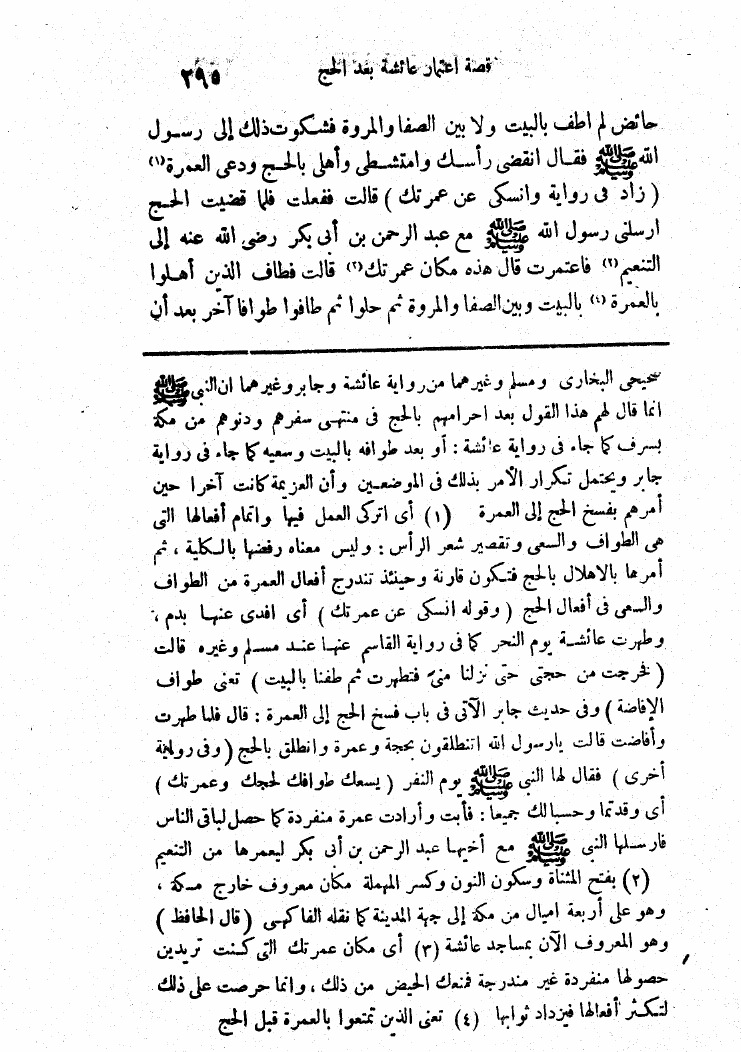 قصة اعتمار عائشة بعد الحج
٢٩٥
حائض لم اطف بالبيت ولا بين الصفا والمروة فشكوت ذلك إلى رسول
الله ﷺ فقال انقضى رأسك وامتشطى وأهلى بالحج ودعى العمرة (١)
( زاد فى رواية وانسكى عن عمرتك ) قالت ففعلت فلما قضيت الحج
ارسلنى رسول الله ﷺ مع عبد الرحمن بن أبى بكر رضى الله عنه إلى
التنعيم (٢) فاعتمرت قال هذه مكان عمرتك (٣) قالت فطاف الذين أهلوا
بالعمرة (٤) بالبيت وبين الصفا والمروة ثم حلوا ثم طافوا طوافا آخر بعد أن
صحيحى البخارى ومسلم وغيرهما من رواية عائشة وجابر وغيرهما ان النبى ﷺ
انما قال لهم هذا القول بعد احرامهم بالحج فى منتهى سفرهم ودنوهم من مكة
بسرف كما جاء فى رواية عائشة : أو بعد طوافه بالبيت وسعيه كما جاء فى رواية
جابر ويحتمل تكرار الأمر بذلك فى الموضعين وأن العزيمة كانت آخرا حين
أمرهم بفسخ الحج إلى العمرة (١) أى اتركى العمل فيها واتمام أفعالها التى
هى الطواف والسعى وتقصير شعر الرأس : وليس معناه رفضها بالكلية ، ثم
أمرها بالاهلال بالحج فتكون قارنة وحينئذ تندرج أفعال العمرة من الطواف
والسعى فى أفعال الحج ( وقوله انسكى عن عمرتك ) أى افدى عنها بدم ،
وطهرت عائشة يوم النحر كما فى رواية القاسم عنها عند مسلم وغيره قالت
( فخرجت من حجتى حتى نزلنا منى فتطهرت ثم طفنا بالبيت ) تعنى طواف
الإفاضة ) وفى حديث جابر الآتى فى باب فسخ الحج إلى العمرة : قال فلما طهرت
وأفاضت قالت يارسول الله اتنطلقون بحجة وعمرة وانطلق بالحج ( وفى رواية
أخرى ) فقال لها النبى ﷺ يوم النفر ( يسعك طوافك لحجك وعمرتك )
أى وقد تما وحسبا لك جميعا : فأبت وأرادت عمرة منفردة كما حصل لباقى الناس
فارسلها النبى ﷺ مع أخيها عبد الرحمن بن أبى بكر ليعمرها من التنعيم
(٢) بفتح المثناة وسكون النون وكسر المهملة مكان معروف خارج مكة ،
وهو على أربعة اميال من مكة إلى جهة المدينة كما نقله الفاكهى ( قال الحافظ )
وهو المعروف الآن بمساجد عائشة (٣) أى مكان عمرتك التى كنت تريدين
حصولها منفردة غير مندرجة فمنعك الحيض من ذلك ، وانما حرصت على ذلك
لتكثر أفعالها فيزداد ثوابها (٤) تعنى الذين تمتعوا بالعمرة قبل الحج